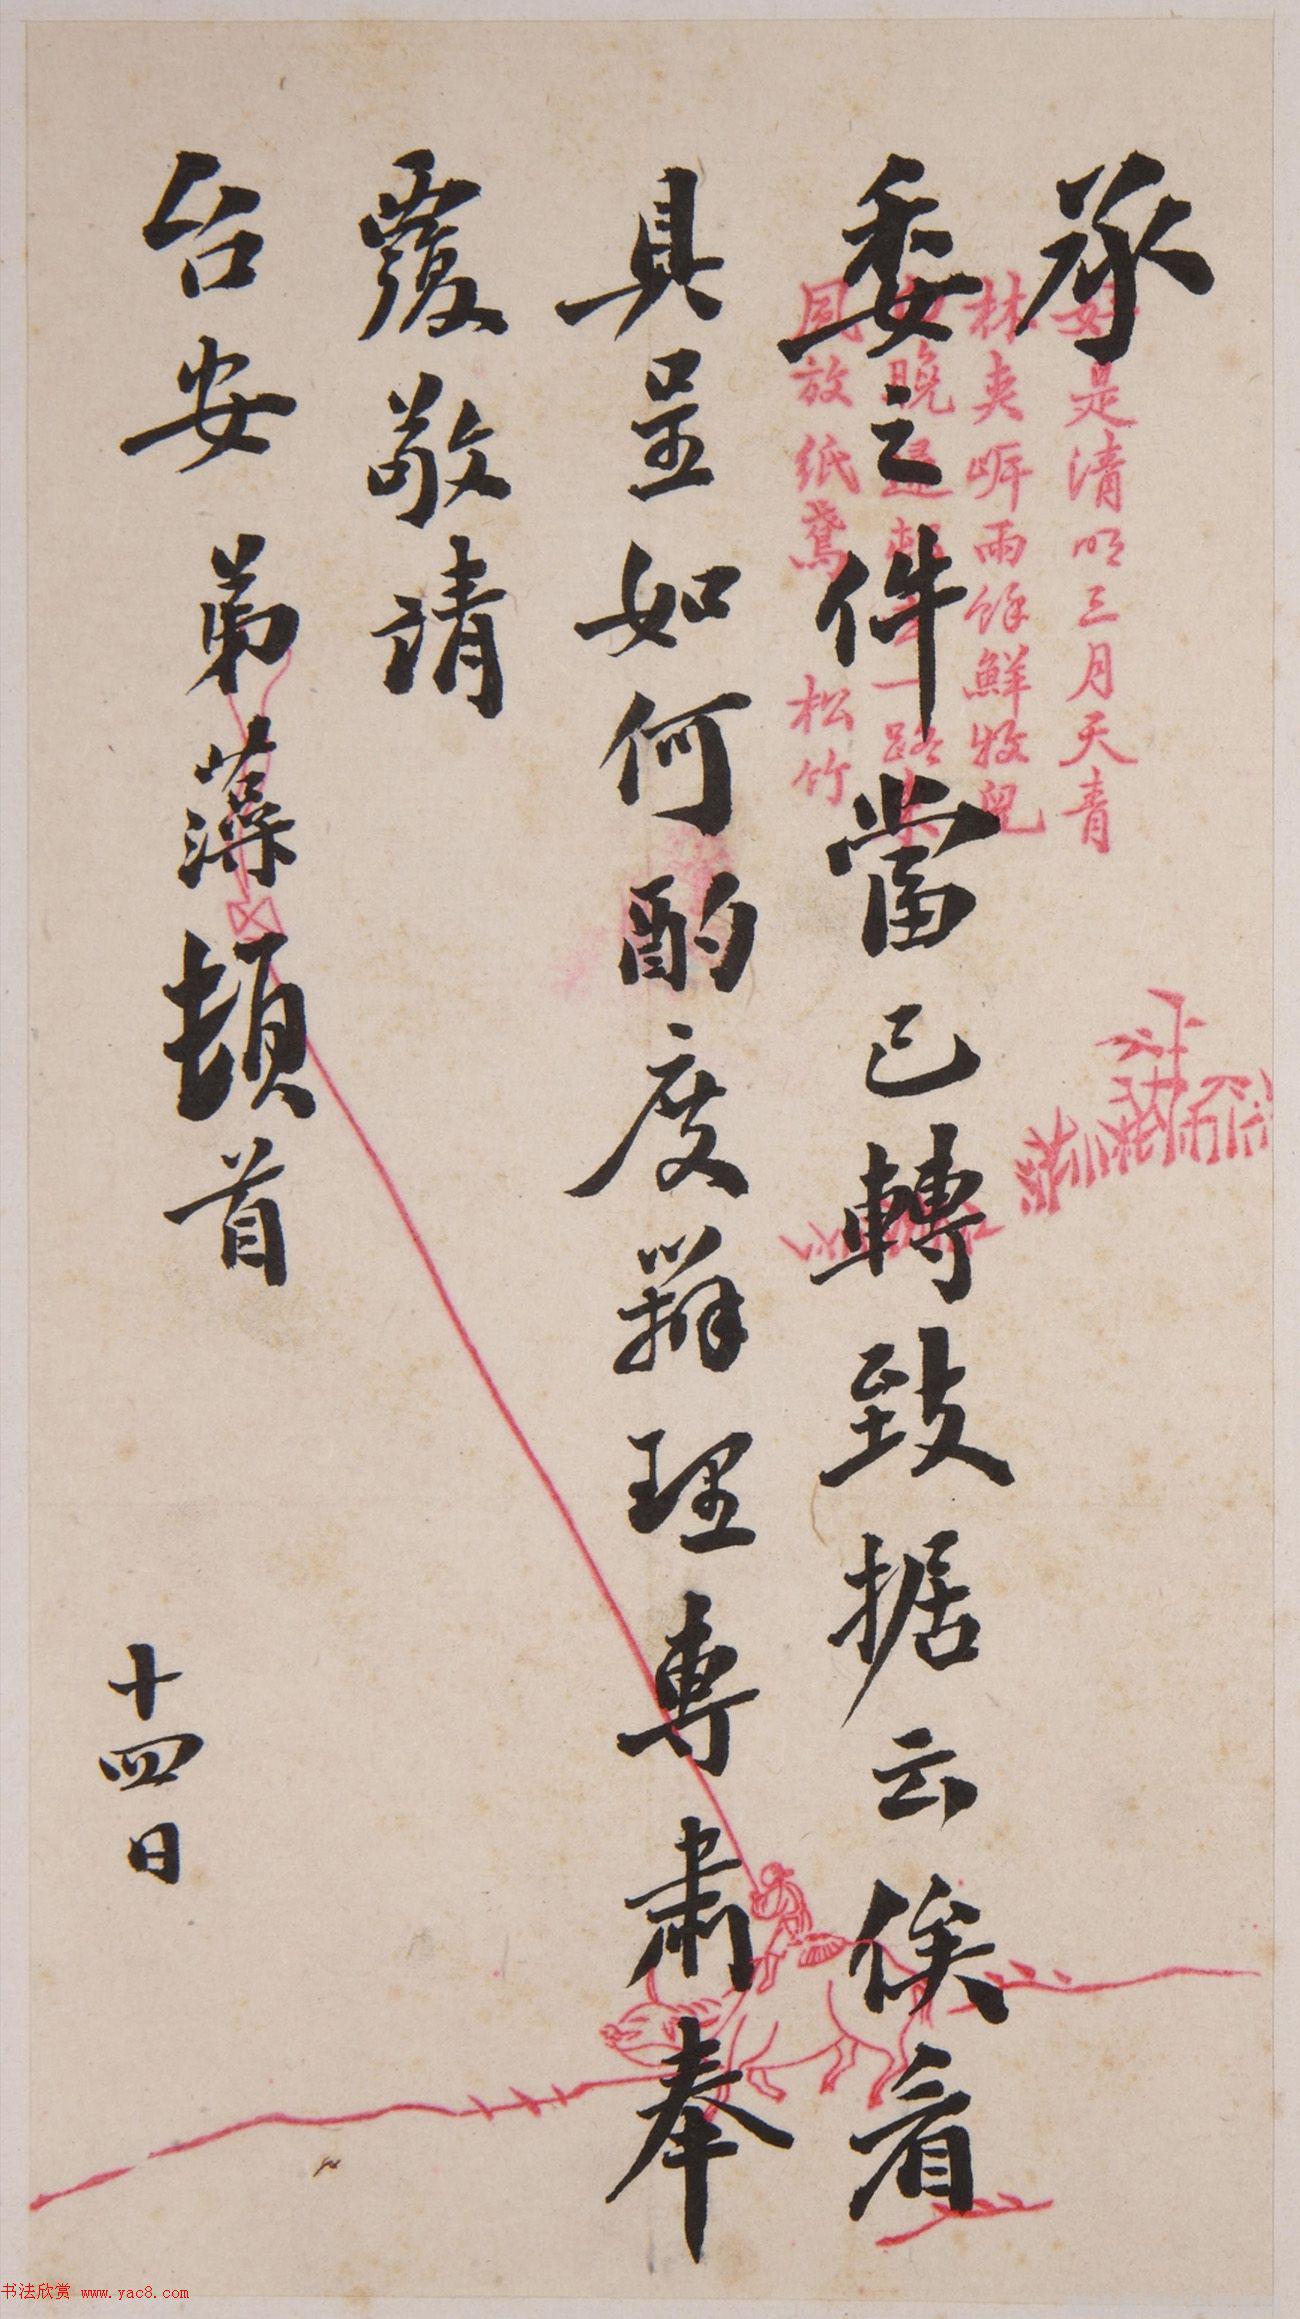 承
委之件當已轉致据云俟看
具呈如何酌度辦理專肅奉
覆敬請
台安 弟藻頓首
十四日
好是清明三月天青
林夾岸雨餘鮮牧兒
晚歸一路
風放紙鳶 松竹
书法欣赏 www.yac8.com